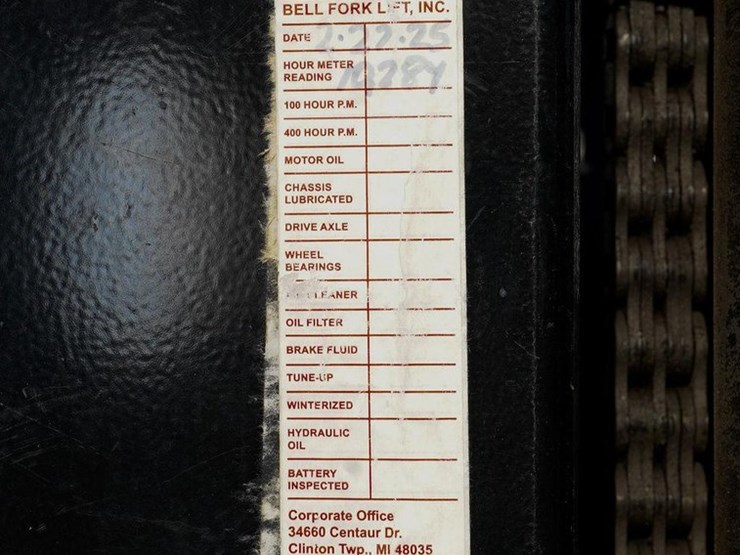 BELL FORK LIFT, INC.
DATE 2.27.25
HOUR METER
READING
100 HOUR P.M.
400 HOUR P.M.
MOTOR OIL
CHASSIS
LUBRICATED
DRIVE AXLE
WHEEL
BEARINGS
CLEANER
OIL FILTER
BRAKE FLUID
TUNE-UP
WINTERIZED
HYDRAULIC
OIL
BATTERY
INSPECTED
Corporate Office
34660 Centaur Dr.
Clinton Twp., MI 48035